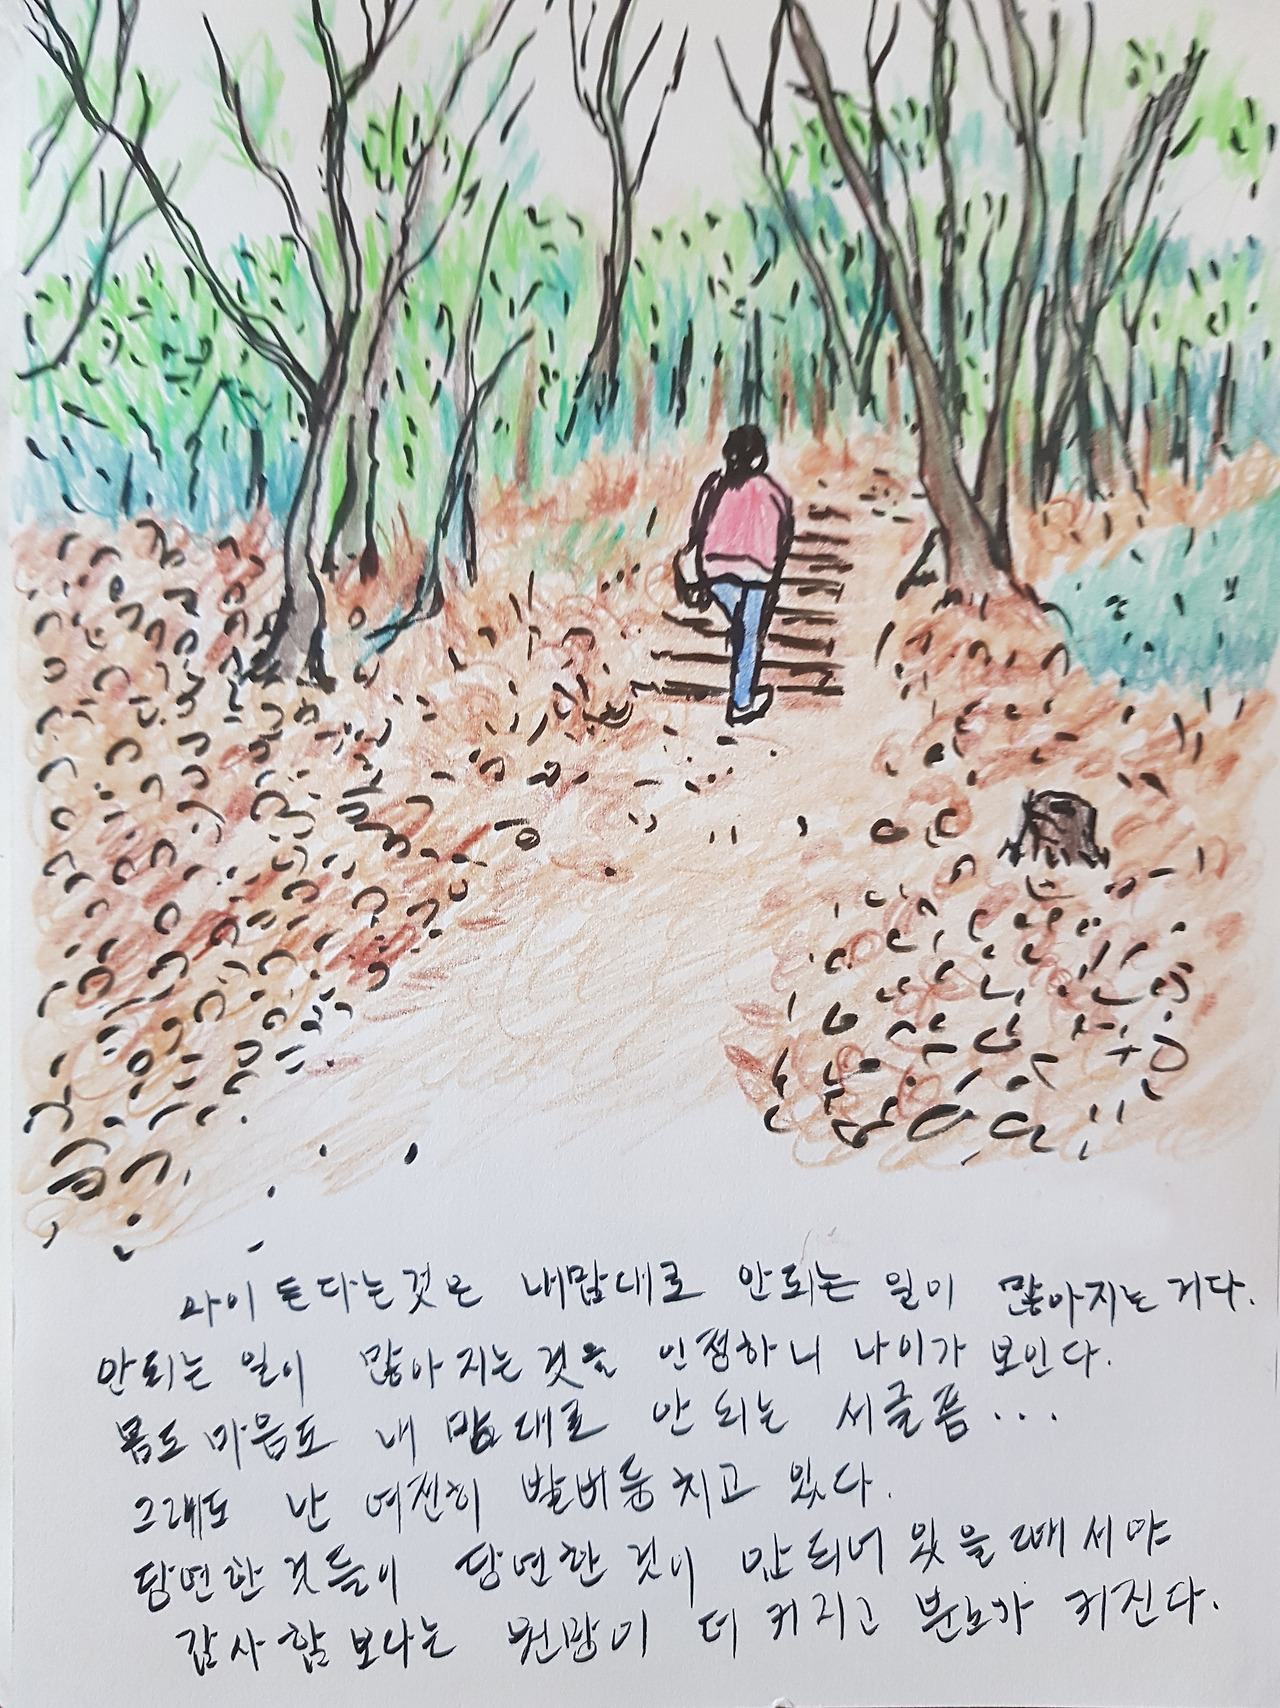 나이 든다는것은 내맘대로 안되는 일이 많아지는 거다.
안되는 일이 많아지는것을 인정하니 나이가 보인다.
몸도 마음도 내 맘대로 안 되는 서글픔...
그래도 난 여전히 발버둥치고 있다.
당연한 것들이 당연한 것이 안되어 있을때 서야
감사함 보다는 원망이 더 커지고 분노가 커진다.